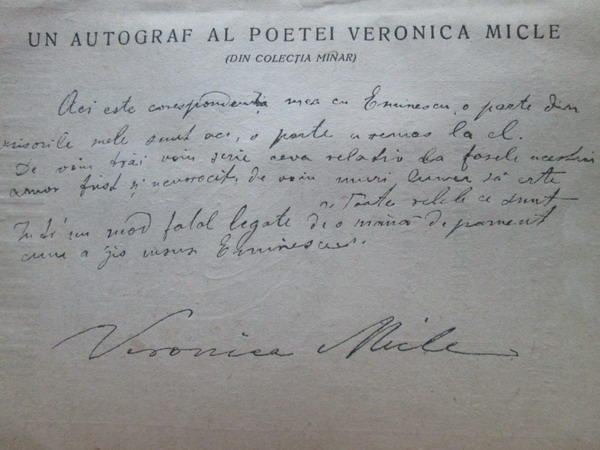 UN AUTOGRAF AL POETEI VERONICA MICLE
(DIN COLECȚIA MINAR)
Aci este corespondența mea cu Eminescu, o parte din
scrisorile mele sunt aci, o parte a remas la el.
De voiu trăi voiu scrie ceva relativ la fasele acestui
amor trist și nenorocit; de voiu muri lumea să erte
"Toate relele ce sunt
Într'un mod fatal legate de o mână de pament
cum a zis insusi Eminescu.
Veronica Micle